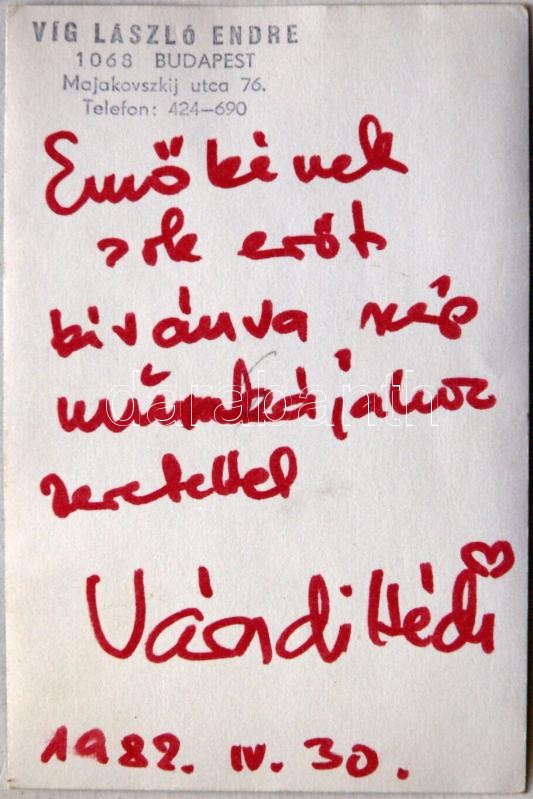 VÍG LÁSZLÓ ENDRE
1068 BUDAPEST
Majakovszkij utca 76.
Telefon: 424—690
Emőkének
sok erőt
kivánva szép
munkájahoz
szeretettel
Váradi Hédi
1982. IV. 30.
darabanth